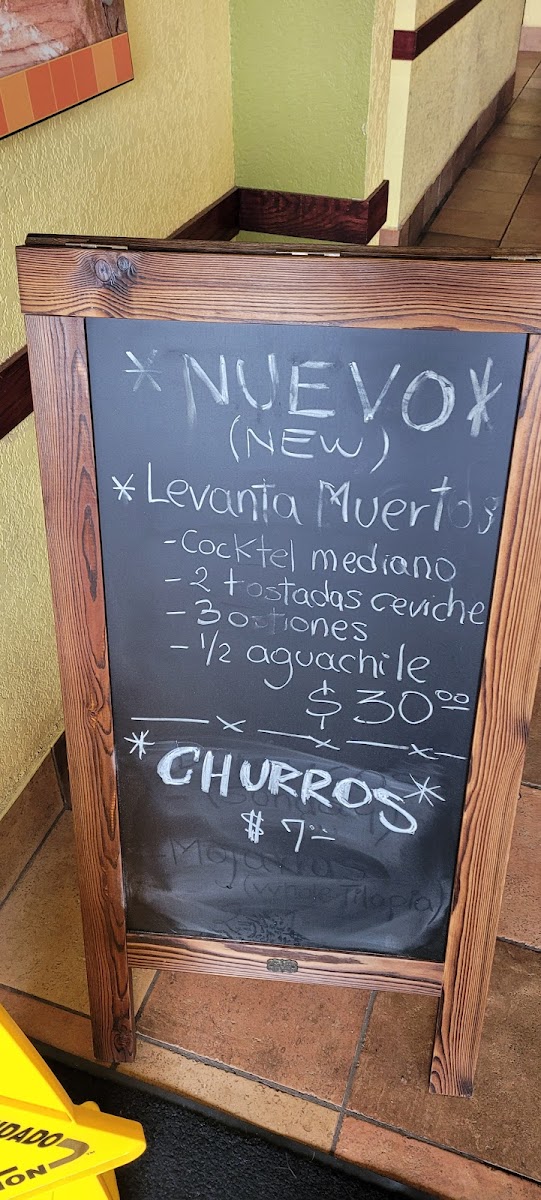 * NUEVO *
(NEW)
* Levanta Muertos
- Cocktel mediano
- 2 tostadas ceviche
- 3 ostiones
- 1/2 aguachile
$ 30.00
* CHURROS *
$ 7.00
Mojarras
(whole Tilapia)
DADO
ION